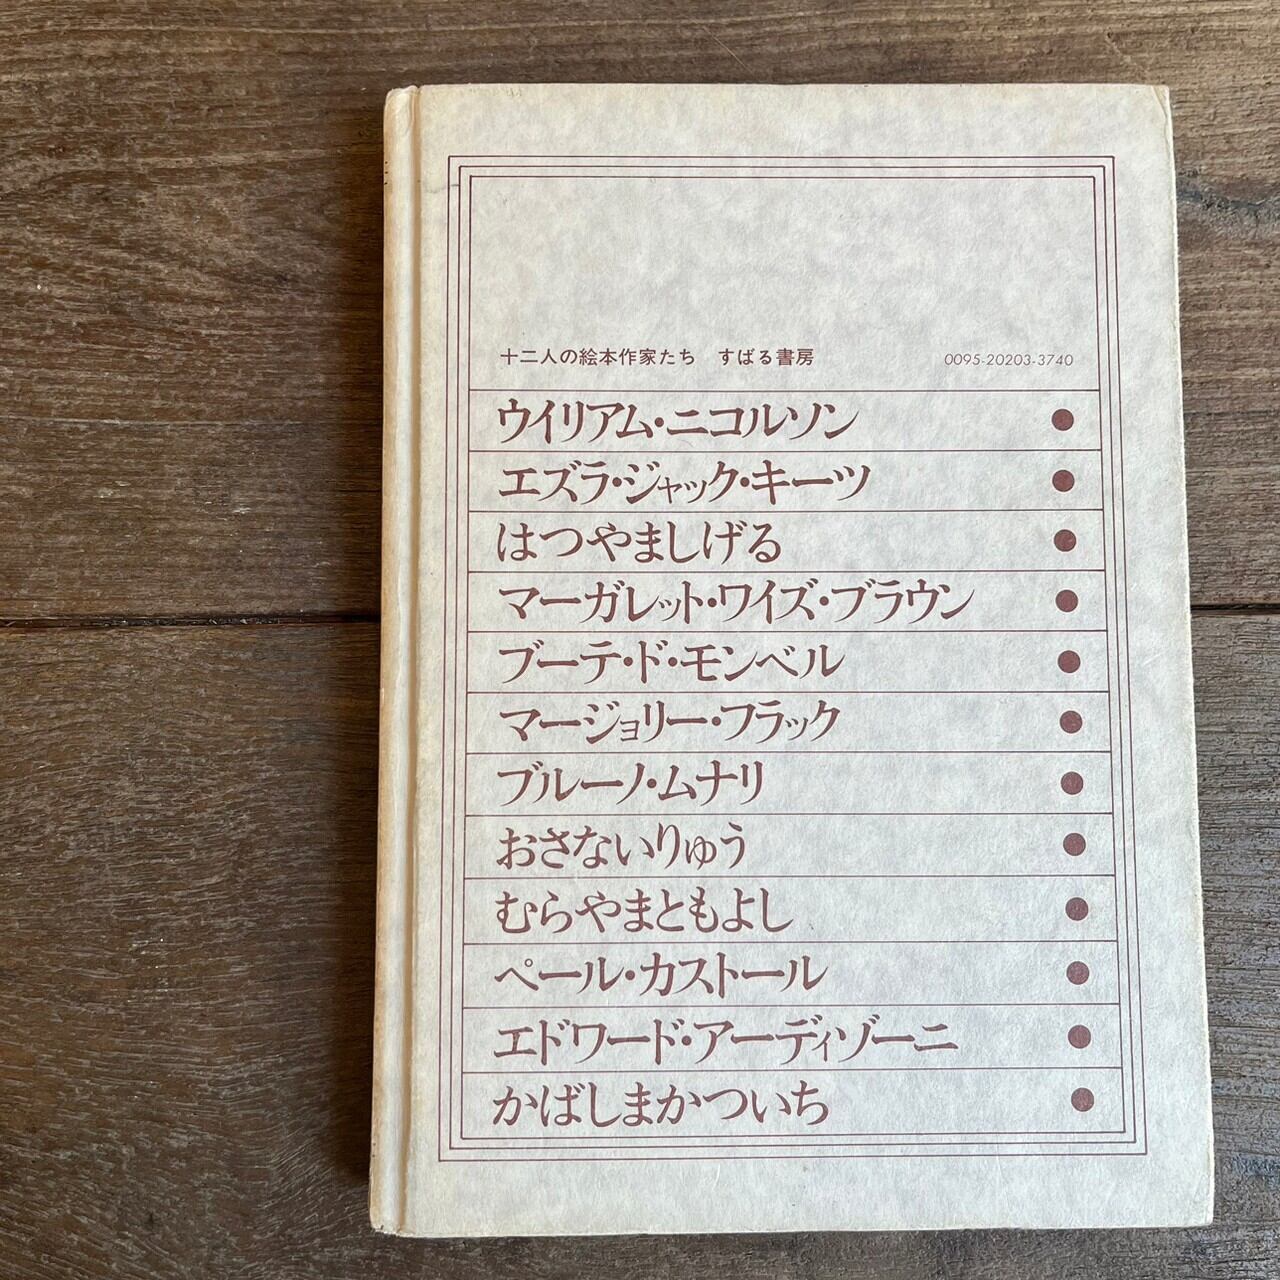 十二人の絵本作家たち　すばる書房　0095-20203-3740
ウイリアム・ニコルソン ●
エズラ・ジャック・キーツ ●
はつやましげる ●
マーガレット・ワイズ・ブラウン ●
ブーテ・ド・モンベル ●
マージョリー・フラック ●
ブルーノ・ムナリ ●
おさないりゅう ●
むらやまともよし ●
ペール・カストール ●
エドワード・アーディゾーニ ●
かばしまかついち ●